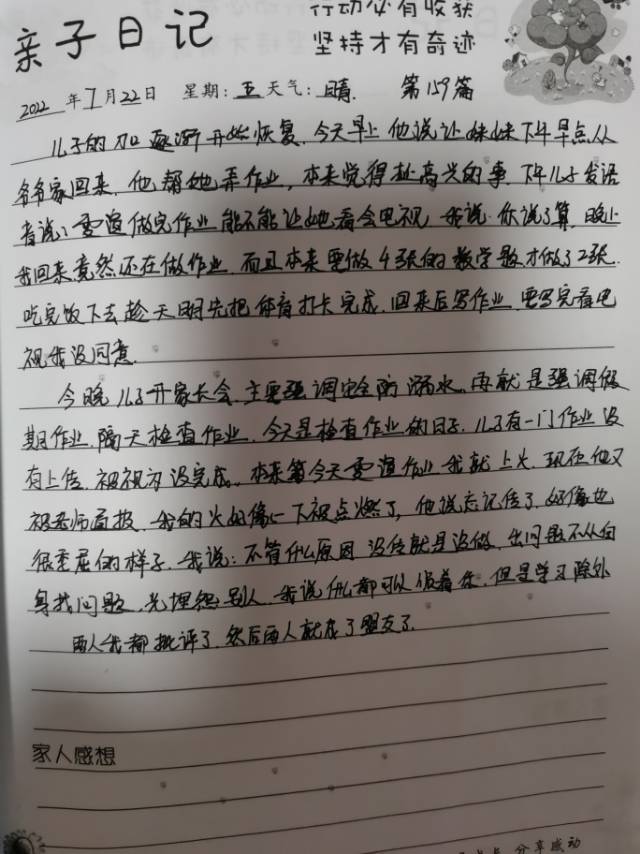 行动必有收获
亲子日记 坚持才有奇迹
2022年7月22日 星期:五 天气:晴. 第159篇
儿子的 逐渐开始恢复. 今天早上他说让妹妹下午早点从
爷爷家回来, 他帮她弄作业, 本来觉得挺高兴的事. 下午儿子发语
音说: 雯谊做完作业能不能让她看会电视, 我说: 你说了算. 晚上
我回来竟然还在做作业. 而且本来要做4张的数学题才做了2张.
吃完饭下去趁天明先把体育打卡完成. 回来后写作业. 要写完看电
视我没同意.
今晚儿子开家长会. 主要强调安全防溺水. 再就是强调假
期作业. 隔天检查作业. 今天是检查作业的日子. 儿子有一门作业没
有上传. 被视为没完成. 本来算今天雯谊作业我就上火. 现在他又
被老师通报. 我的火好像一下被点燃了, 他说忘记传了. 好像也
很委屈的样子. 我说: 不管什么原因 没传就是没做. 出问题不从自
身找问题, 光埋怨别人. 我说什么都可以惯着你. 但是学习除外
两人我都批评了. 然后两人就成了盟友了.
家人感想
分享感动